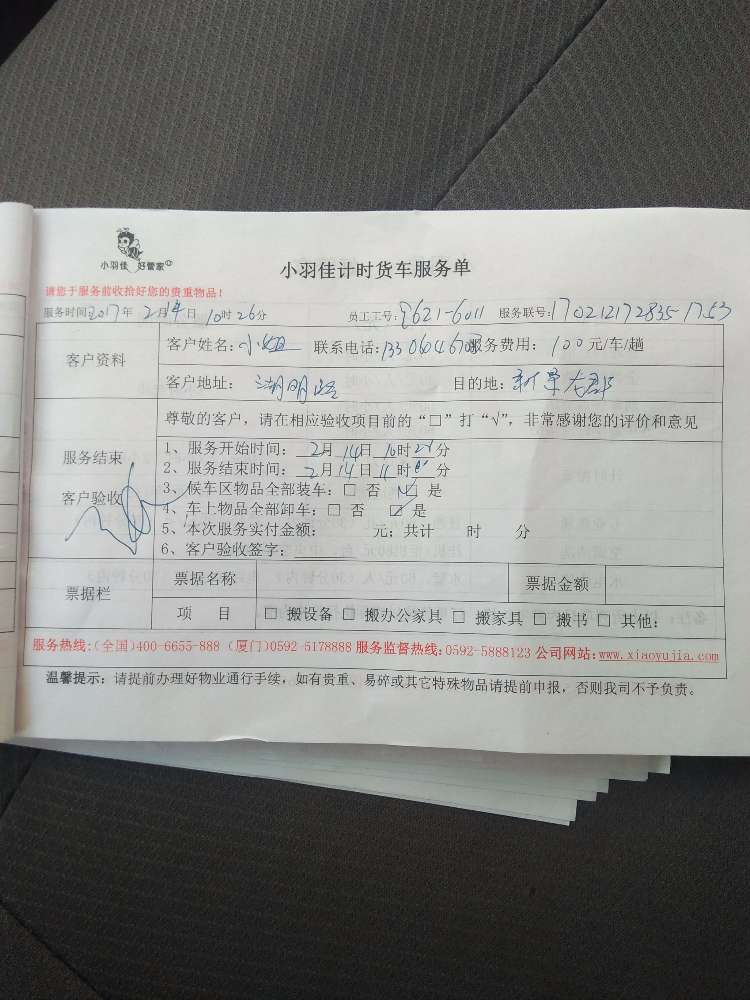 小羽佳 好管家
小羽佳计时货车服务单
请您于服务前收拾好您的贵重物品!
服务时间2017年 2月14日 10时26分 员工工号:9621-6011 服务联号:170212172835-1753
客户资料
客户姓名:小姐 联系电话: 服务费用: 100元/车/趟
客户地址: 湖明路 目的地:
尊敬的客户,请在相应验收项目前的“□”打“√”,非常感谢您的评价和意见
服务结束
客户验收
1、服务开始时间: 2月14日 10时 分
2、服务结束时间: 2月14日 11时 分
3、候车区物品全部装车:□ 否 ☑ 是
4、车上物品全部卸车:□ 否 ☑ 是
5、本次服务实付金额: 元;共计 时 分
6、客户验收签字:
票据栏
票据名称 票据金额
项 目 □ 搬设备 □ 搬办公家具 □ 搬家具 □ 搬书 □ 其他:
服务热线:(全国)400-6655-888 (厦门)0592-5178888 服务监督热线:0592-5888123 公司网站:www.xiaoyujia.com
温馨提示:请提前办理好物业通行手续,如有贵重、易碎或其它特殊物品请提前申报,否则我司不予负责。